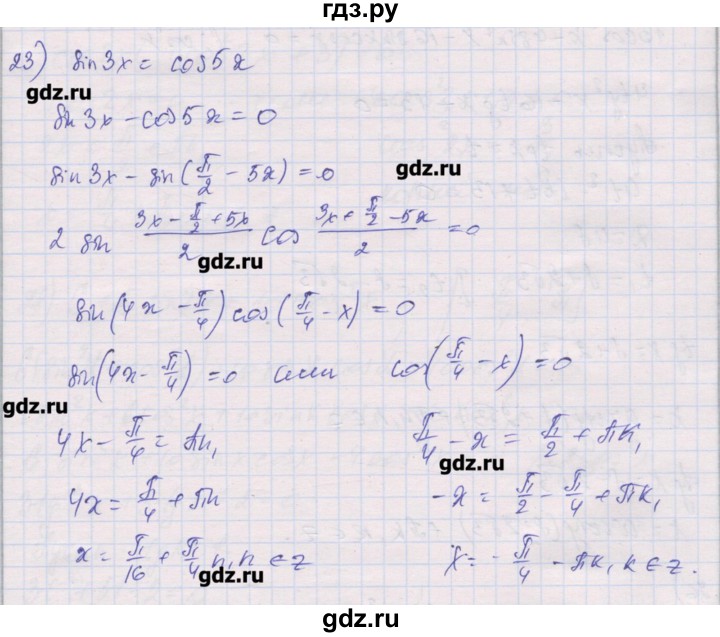 гдз.ру
23) sin 3x = cos 5x
gdz.ru
sin 3x - cos 5x = 0
sin 3x - sin(π/2 - 5x) = 0
gdz.ru
2 sin (3x - π/2 + 5x)/2 cos (3x + π/2 - 5x)/2 = 0
gdz.ru
sin(4x - π/4) cos(π/4 - x) = 0
sin(4x - π/4) = 0 или cos(π/4 - x) = 0
gdz.ru
4x - π/4 = πn, π/4 - x = π/2 + πk,
gdz.ru
4x = π/4 + πn -x = π/2 - π/4 + πk,
x = π/16 + π/4 n, n ∈ z x = - π/4 - πk, k ∈ z.
gdz.ru
gdz.ru